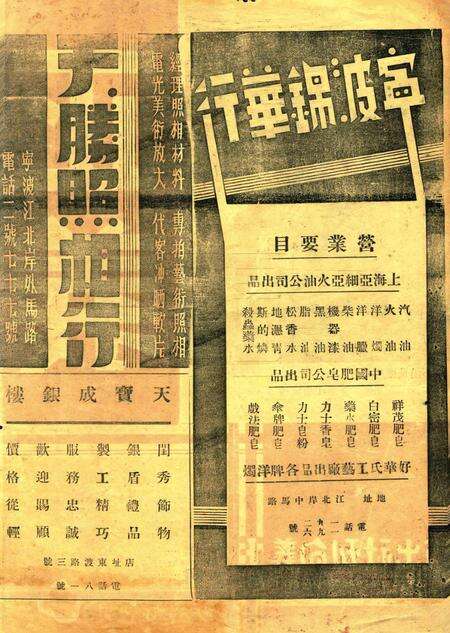 寧波錦華行
營業要目
上海亞細亞火油公司出品
汽油
火油
柴油
松香水
地瀝青
殺蟲藥水
中國肥皂公司出品
祥茂肥皂
白密肥皂
藥水肥皂
力士香皂
力士皂粉
傘牌肥皂
戲法肥皂
好華氏工藝廠出品各牌洋燭
地址 江北岸中馬路
電話
經理照相材料 專拍藝術照相
電光美術放大 代客沖晒軟片
天勝照相行
寧波江北岸外馬路
電話二號七十七號
天寶成銀樓
閨秀飾物
銀盾禮品
製工精巧
服務忠誠
歡迎賜顧
價格從輕
店址東渡路三號
電話八一號